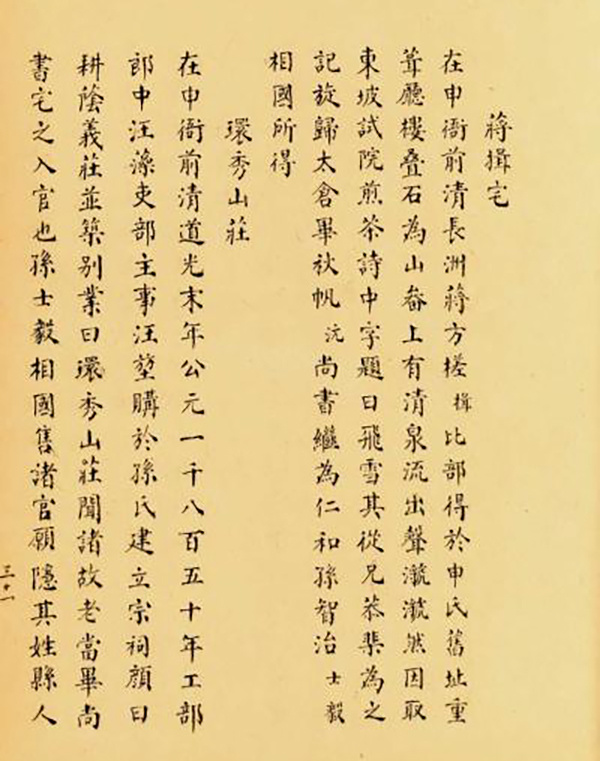 蔣揖宅
在申衙前清長洲蔣方槎揖比部得於申氏舊址重
葺廳樓叠石為山畚上有清泉流出聲㶁㶁然因取
東坡試院煎茶詩中字題曰飛雪其從兄恭棐為之
記旋歸太倉畢秋帆沅尚書繼為仁和孫智治士毅
相國所得
環秀山莊
在申衙前清道光末年公元一千八百五十年工部
郎中汪藻吏部主事汪堃購於孫氏建立宗祠顏曰
耕蔭義莊並築別業曰環秀山莊聞諸故老當畢尚
書宅之入官也孫士毅相國售諸官願隱其姓縣人
三十一